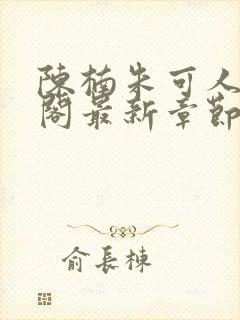 陳楠朱可人
閣最新章節
俞長棟